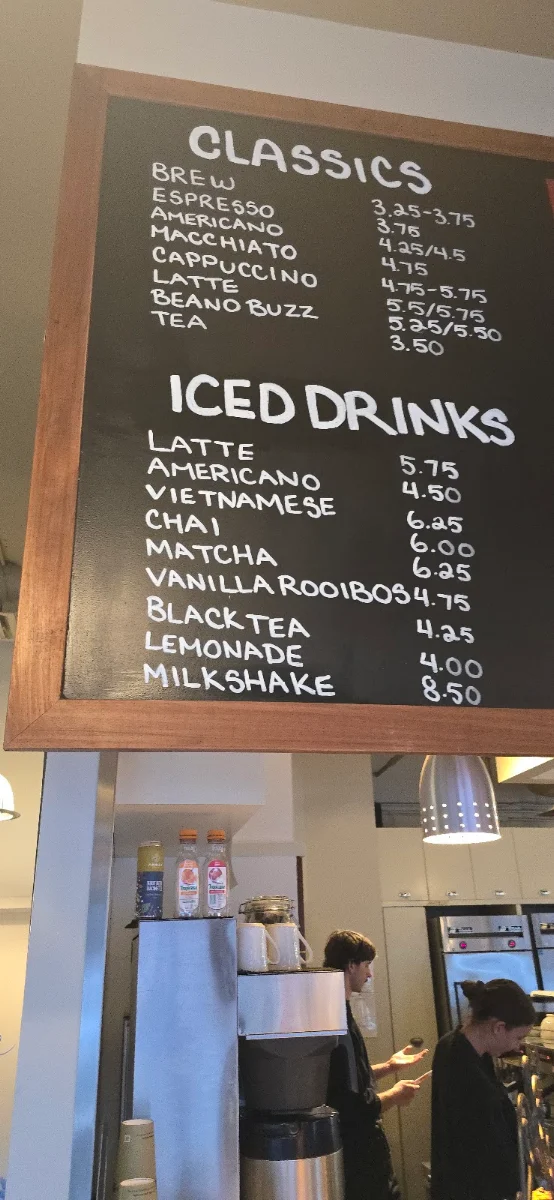 CLASSICS
BREW 3.25-3.75
ESPRESSO 3.75
AMERICANO 4.25/4.5
MACCHIATO 4.75
CAPPUCCINO 4.75-5.75
LATTE 5.5/5.75
BEANO BUZZ 5.25/5.50
TEA 3.50
ICED DRINKS
LATTE 5.75
AMERICANO 4.50
VIETNAMESE 6.25
CHAI 6.00
MATCHA 6.25
VANILLA ROOIBOS 4.75
BLACK TEA 4.25
LEMONADE 4.00
MILKSHAKE 8.50